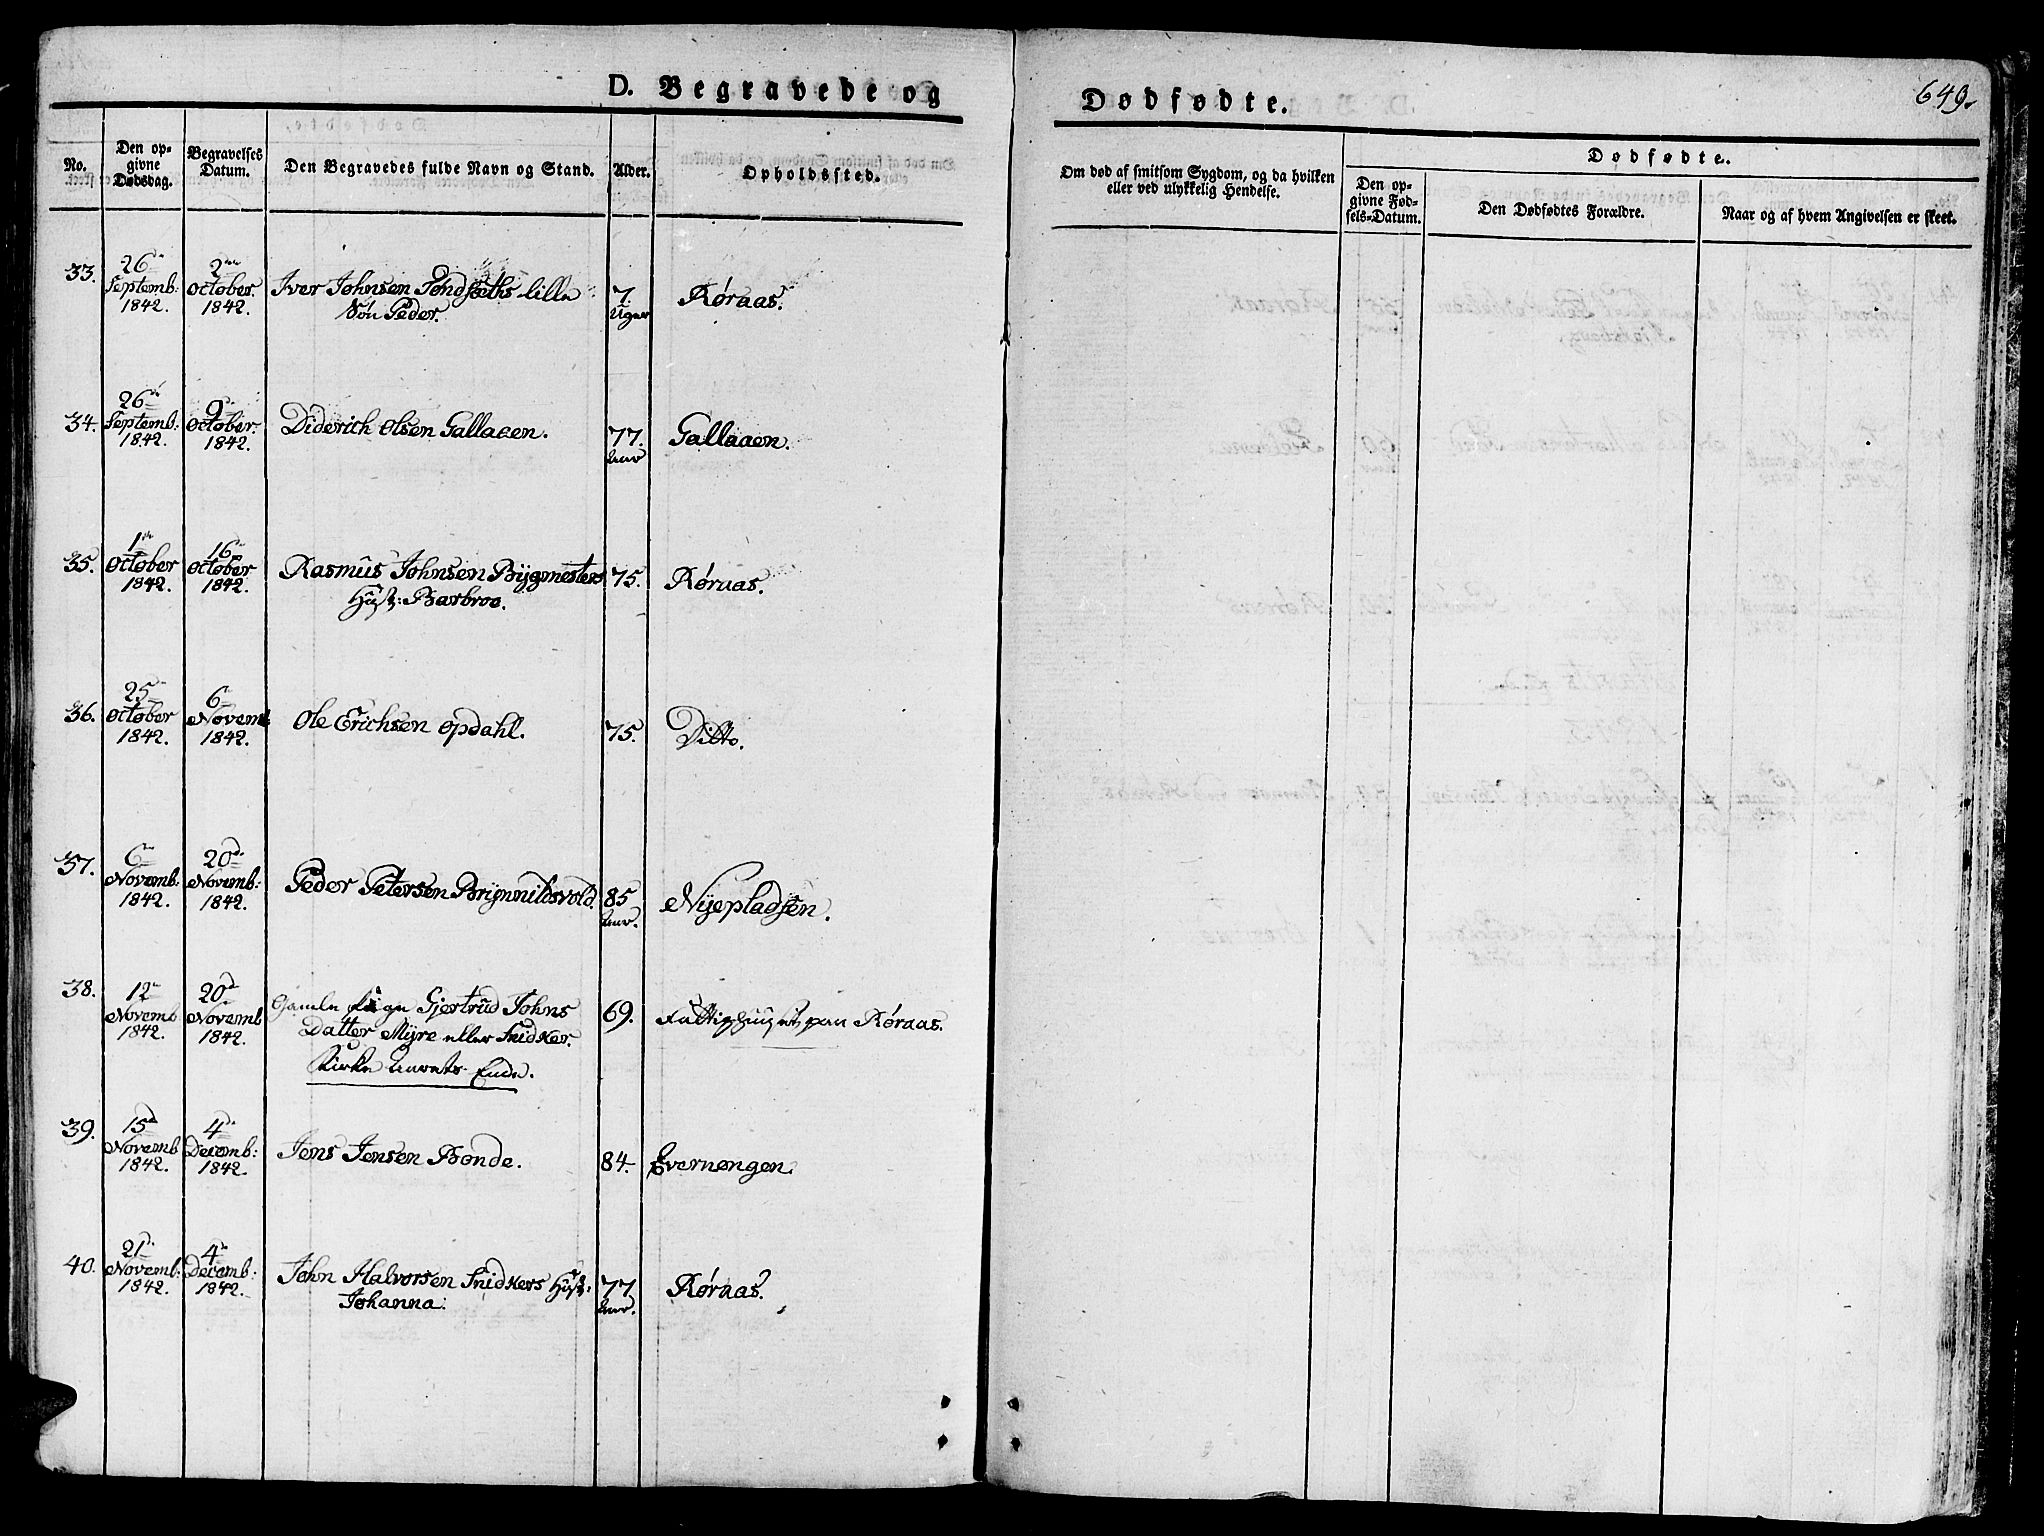 D. Begravede og
No.
Den op-
givne
Dødsdag.
Begravelses
Datum.
Den Begravedes fulde Navn og Stand.
Alder.
Opholdssted.
33.
26de
Septemb:
1842.
2den
October.
1842.
Iver Johnsen Tondsæths lille
Søn Peder.
7.
Uger
Røraas.
34.
26de
Septemb:
1842.
9de
October.
1842.
Diderich Olsen Gallaaen.
77.
Aar
Gallaaen.
35.
1ste
October
1842.
16de
October
1842.
Rasmus Johnsen Bygmesters
Hust: Barbroe.
75.
Røraas.
36.
25de
October
1842.
6te
Novemb
1842.
Ole Erichsen Opdahl.
75.
Ditto.
37.
6te
Novemb:
1842.
20de
Novemb:
1842.
Peder Petersen Brynnildsvold.
85
Aar.
Nyepladsen.
38.
12te
Novemb
1842.
20de
Novemb
1842.
Gamle Pige Gjertrud Johns
Datter Myre eller Snidker.
Kirke Aarets Ende.
69.
Fattighuset paa Røraas.
39.
15de
Novemb
1842.
4de
Decemb:
1842.
Jens Jensen Bonde.
84.
Evernengen.
40.
21de
Novemb:
1842.
4de
Decemb:
1842.
John Halvorsen Snidkers Hust:
Johanna.
77
Aar.
Røraas.
Dødfødte.
649.
Om død af smitsom Sygdom, og da hvilken
eller ved ulykkelig Hendelse.
Dødfødte.
Den op-
givne Fød-
sels-Datum.
Den Dødfødtes Forældre.
Naar og af hvem Angivelsen er skeet.